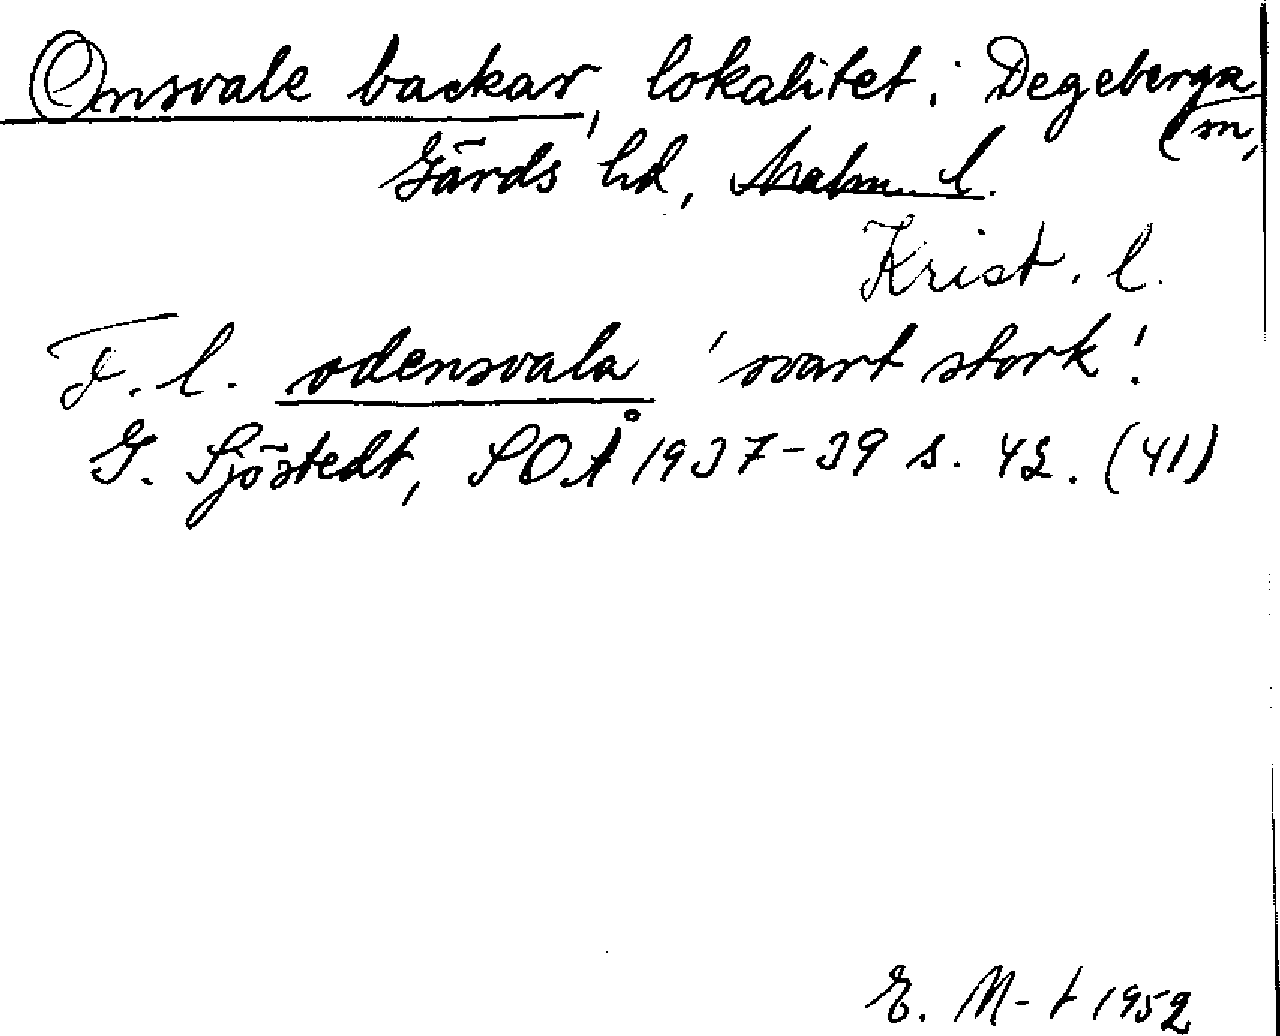 Onsvale backar, lokalitet i Degeberga
sn,
Gärds hd, Malm. l.
Krist. l.
F. l. odensvala 'svart stork'.
G. Sjöstedt, SOÅ 1937-39 s. 42. (41)
E. M-t 1952